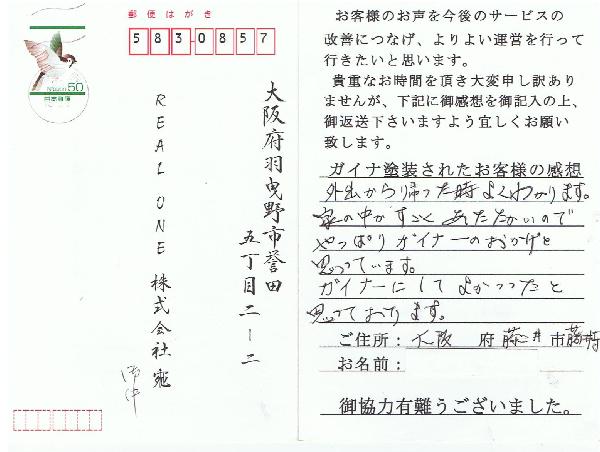 郵便はがき
583-0857
NIPPON 50
大阪府羽曳野市誉田
五丁目二－二
REAL ONE 株式会社宛
御中
お客様のお声を今後のサービスの
改善につなげ、よりよい運営を行って
行きたいと思います。
貴重なお時間を頂き大変申し訳あり
ませんが、下記に御感想を御記入の上、
御返送下さいますよう宜しくお願い
致します。
ガイナ塗装されたお客様の感想
外出から帰った時よくわかります。
家の中がすごくあたたかいので
やっぱりガイナーのおかげと
思っています。
ガイナーにしてよかったと
思っております。
ご住所：大阪 府 藤井 市
お名前：
御協力有難うございました。